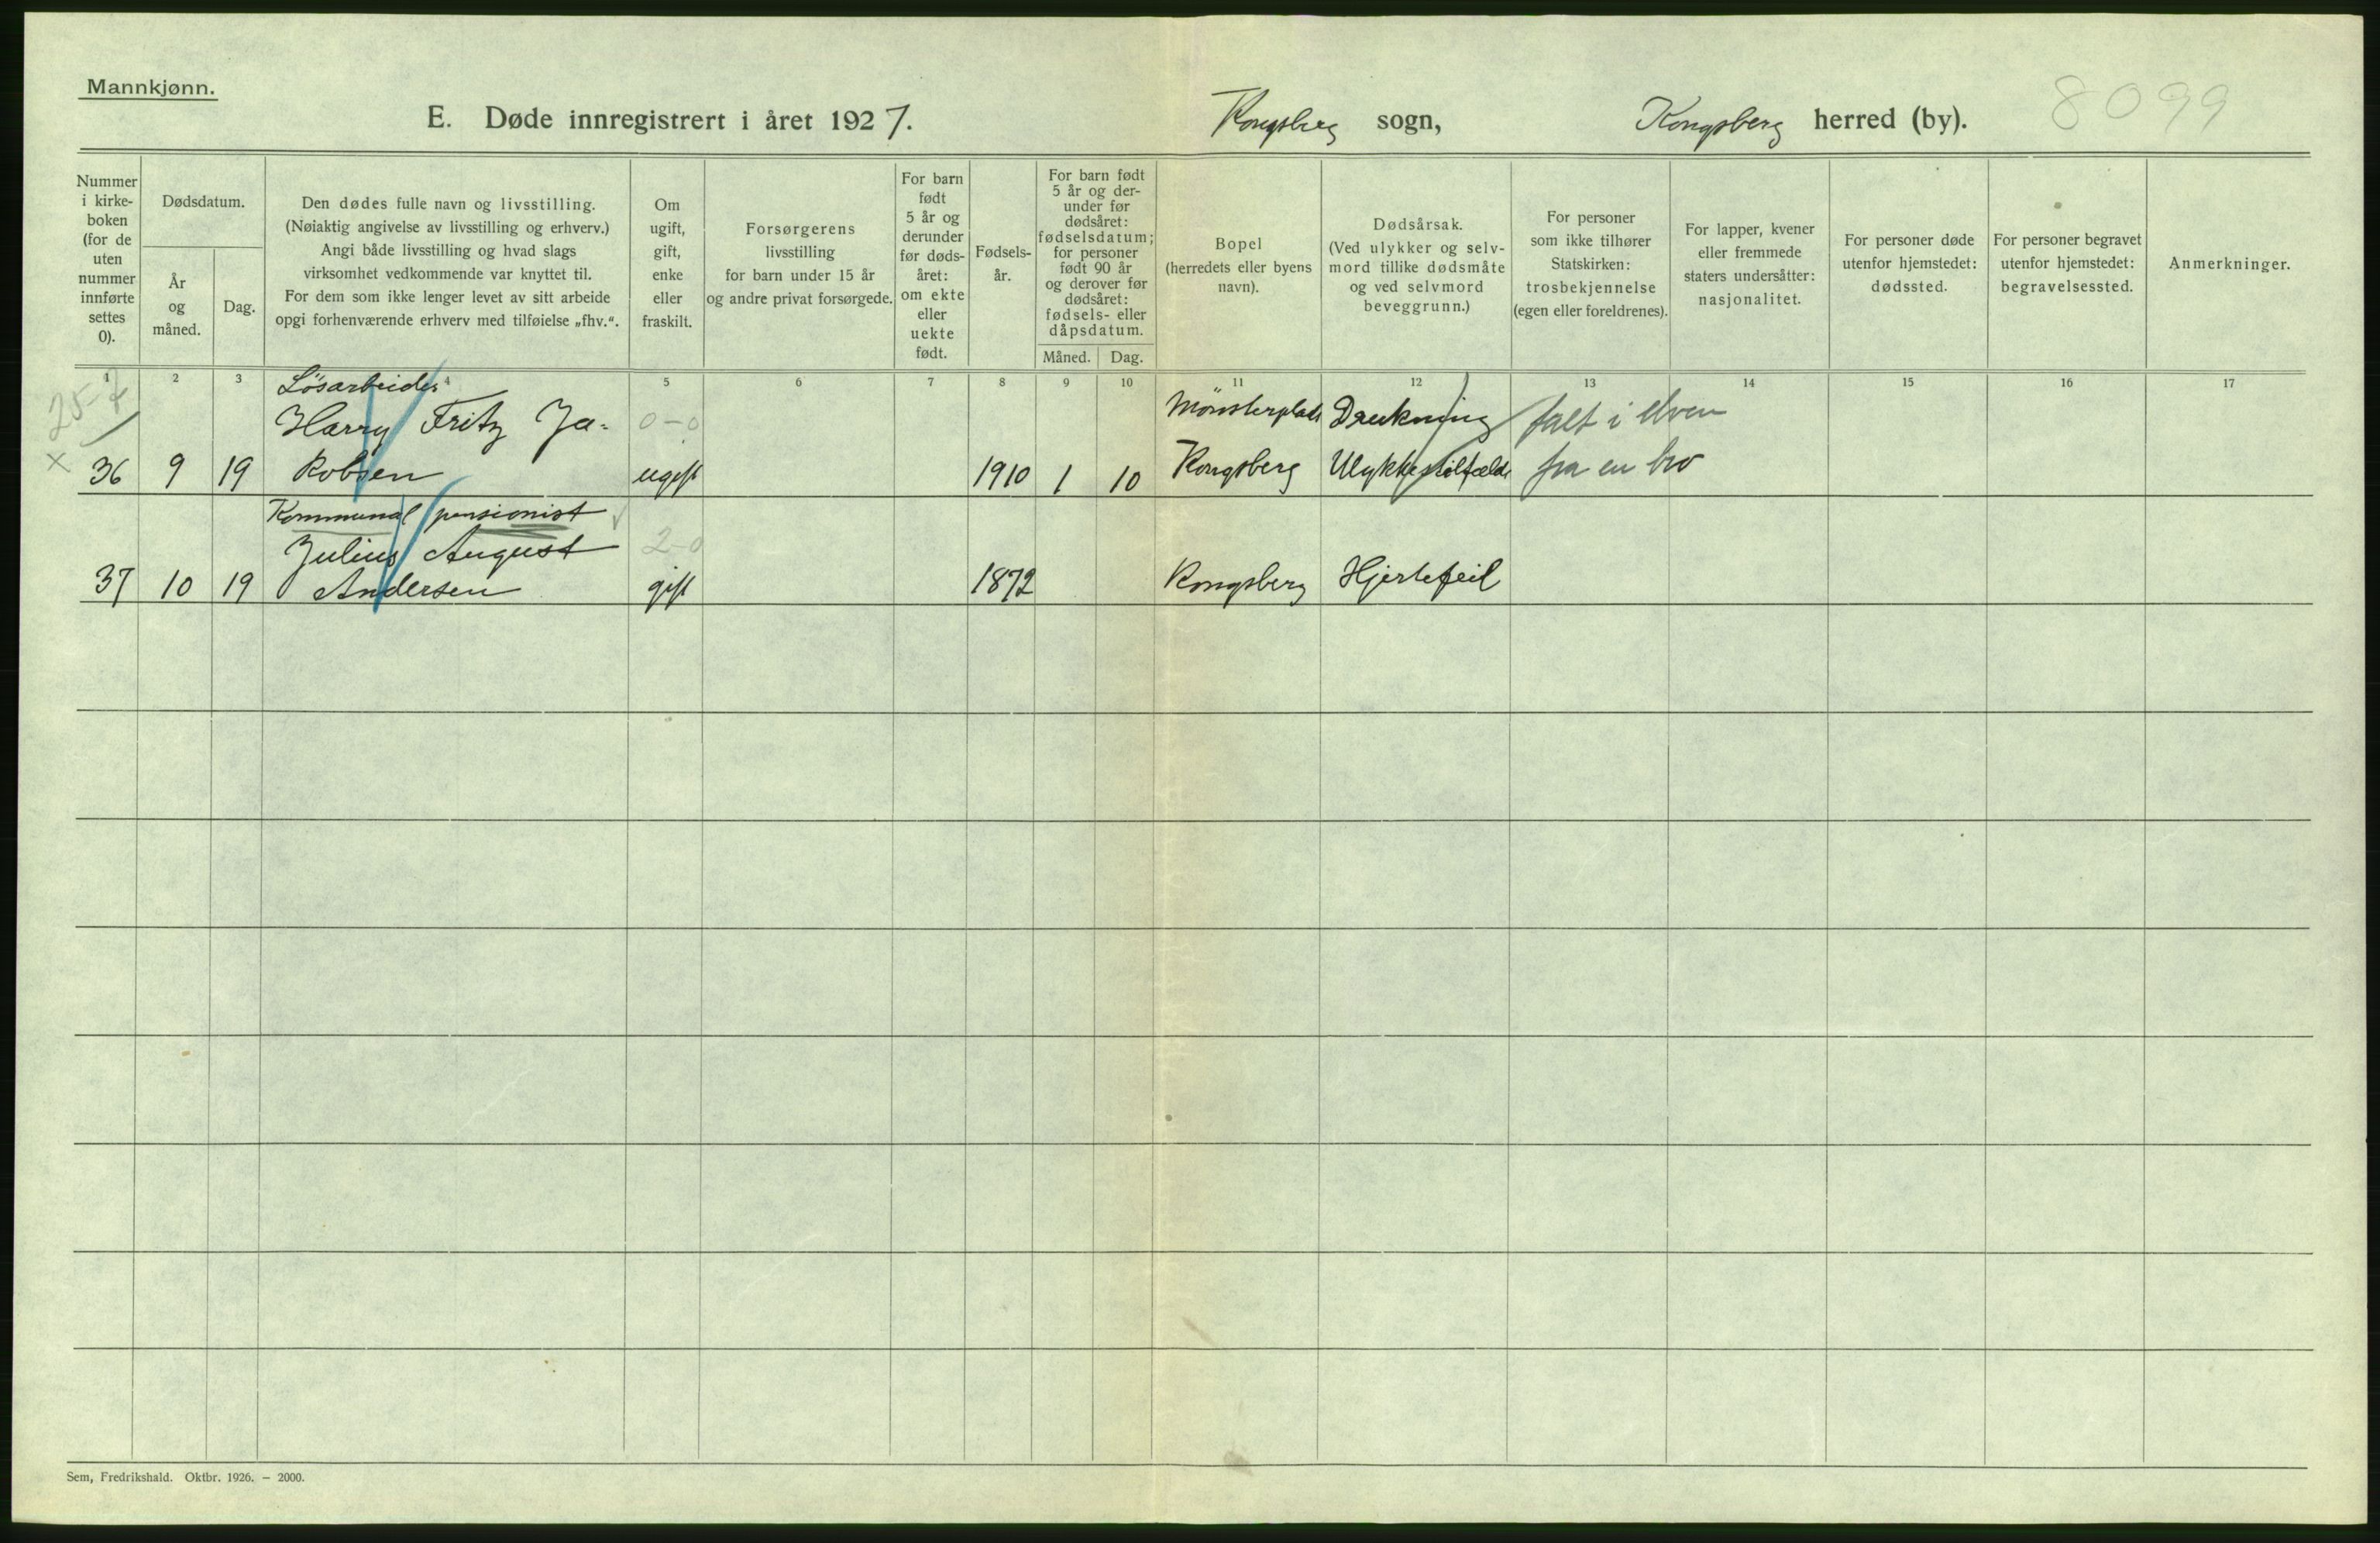 Mannkjønn.
E. Døde innregistrert i året 1927. Kongsberg sogn, Kongsberg herred (by). 8099
Nummer
i kirke-
boken
(for de
uten
nummer
innførte
settes
0).
Dødsdatum.
År
og
måned.
Dag.
Den dødes fulle navn og livsstilling.
(Nøiaktig angivelse av livsstilling og erhverv.)
Angi både livsstilling og hvad slags
virksomhet vedkommende var knyttet til.
For dem som ikke lenger levet av sitt arbeide
opgi forhenværende erhverv med tilføielse „fhv.“.
Om
ugift,
gift,
enke
eller
fraskilt.
Forsørgerens
livsstilling
for barn under 15 år
og andre privat forsørgede.
For barn
født
5 år og
derunder
før døds-
året:
om ekte
eller
uekte
født.
Fødsels-
år.
For barn født
5 år og der-
under før
dødsåret:
fødselsdatum;
for personer
født 90 år
og derover før
dødsåret:
fødsels- eller
dåpsdatum.
Måned. Dag.
Bopel
(herredets eller byens
navn).
Dødsårsak.
(Ved ulykker og selv-
mord tillike dødsmåte
og ved selvmord
beveggrunn.)
For personer
som ikke tilhører
Statskirken:
trosbekjennelse
(egen eller foreldrenes).
For lapper, kvener
eller fremmede
staters undersåtter:
nasjonalitet.
For personer døde
utenfor hjemstedet:
dødssted.
For personer begravet
utenfor hjemstedet:
begravelsessted.
Anmerkninger.
1 2 3 4 5 6 7 8 9 10 11 12 13 14 15 16 17
Lösarbeider
Harry Fritz Ja- 0-0 Mönsterplads Drukning falt i elven
x 36 9 19 kobsen ugift 1910 1 10 Kongsberg Ulykkestilfælde fra en bro
Kommunal pensionist
Julius August 2-0
37 10 19 Andersen gift 1872 Kongsberg Hjertefeil
Sem, Fredrikshald. Oktbr. 1926. – 2000.